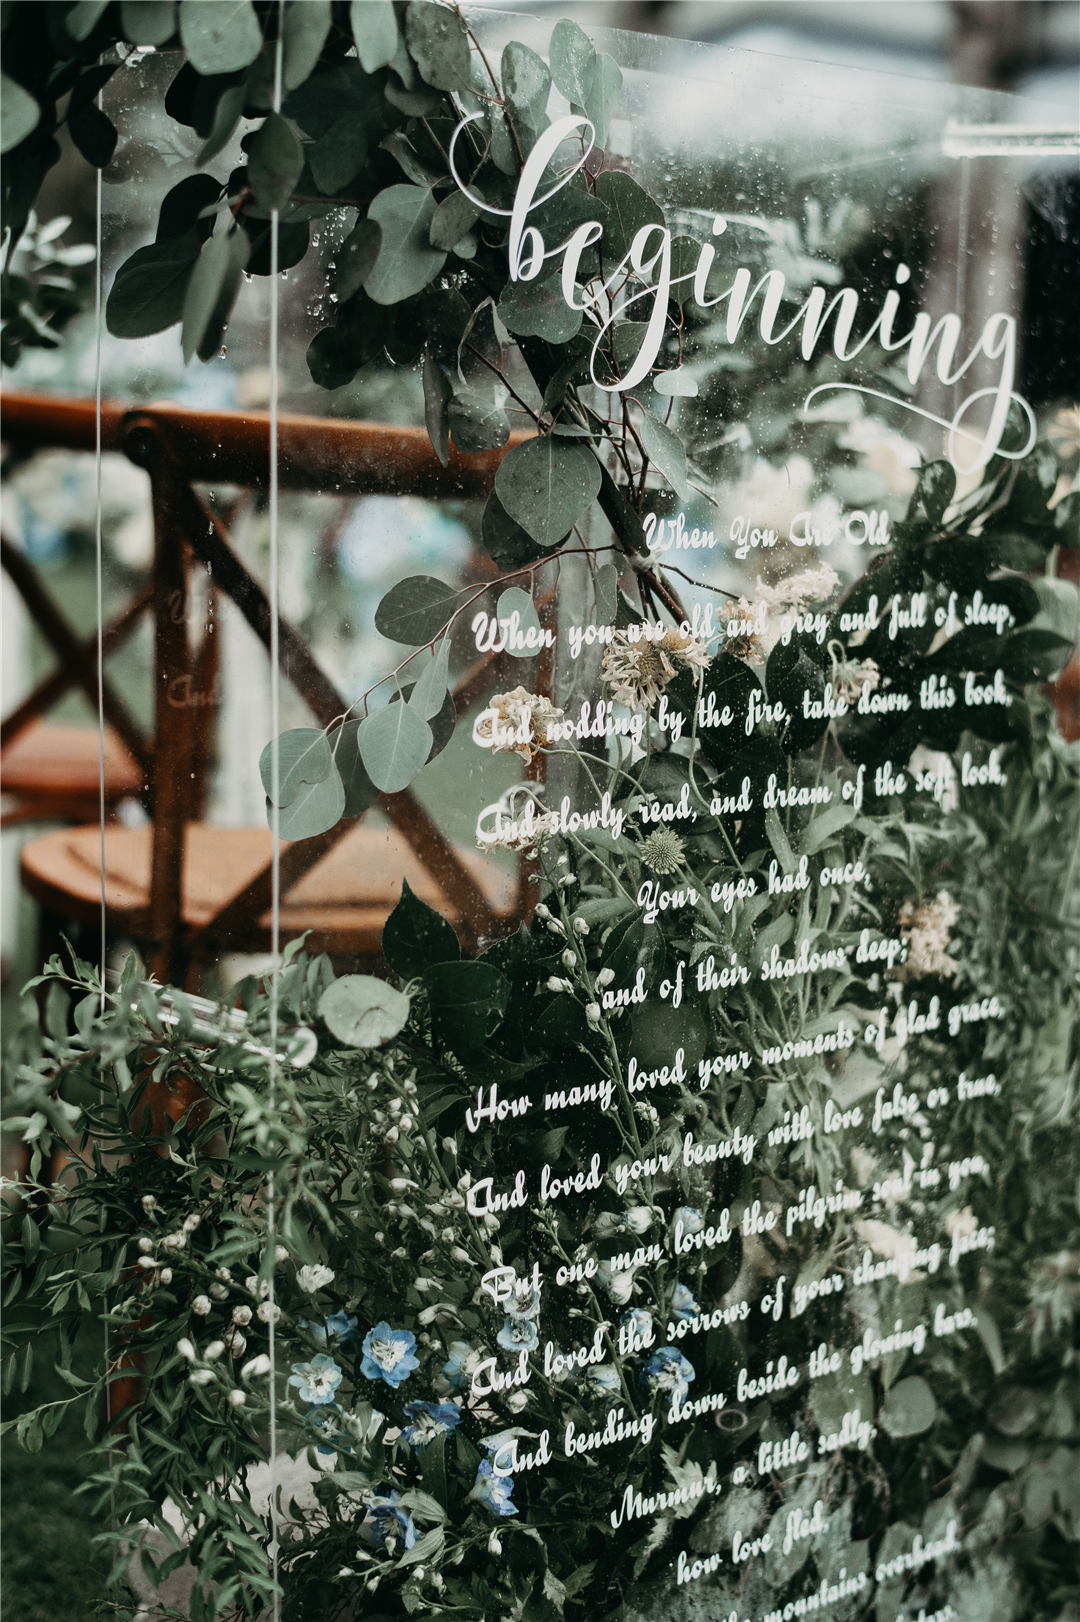 beginning
When You Are Old
When you are old and grey and full of sleep,
And nodding by the fire, take down this book,
And slowly read, and dream of the soft look,
Your eyes had once,
and of their shadows deep;
How many loved your moments of glad grace,
And loved your beauty with love false or true,
But one man loved the pilgrim soul in you,
And loved the sorrows of your changing face;
And bending down beside the glowing bars,
Murmur, a little sadly,
how love fled,
mountains overhead,